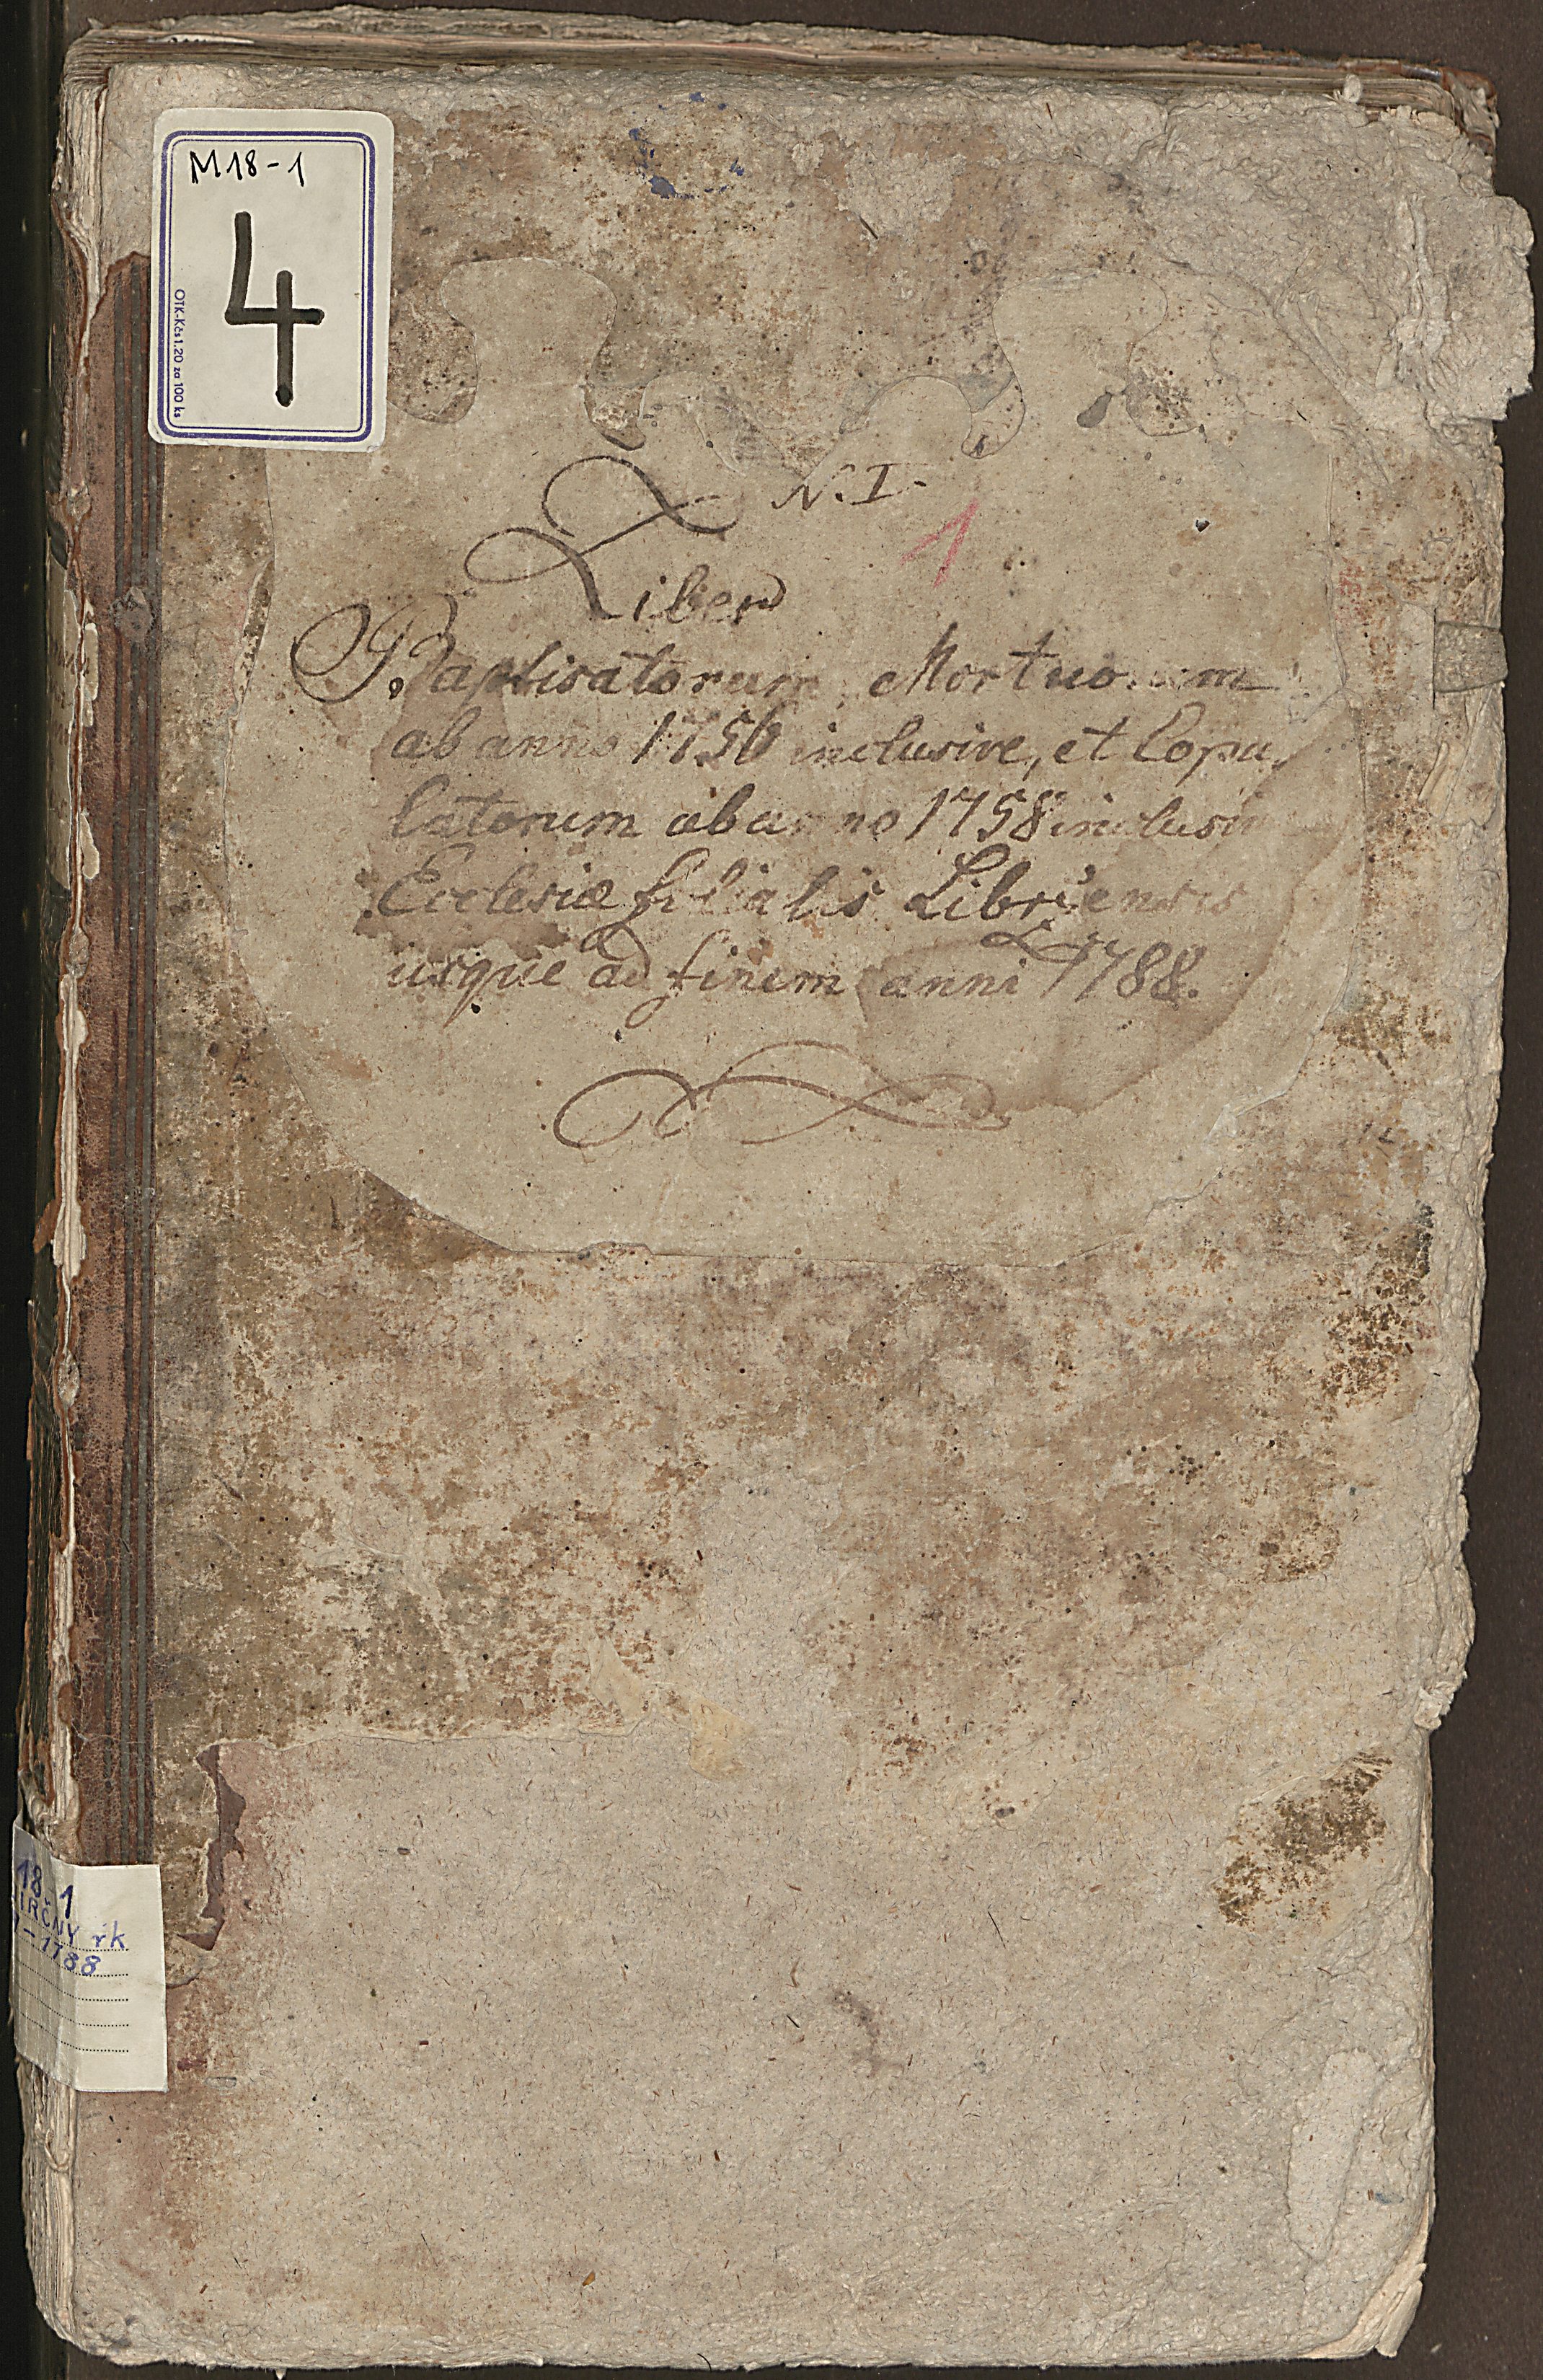 M18-1
4
OTK-Kčs 1.20 za 100 ks
N. I.
1
Liber
Baptisatorum, Mortuorum
ab anno 1756 inclusive, et Copu,
latorum ab anno 1758 inclusive
Ecclesiæ filialis
usque ad finem anni 1788.
18-1
IRČNY rk
-1788